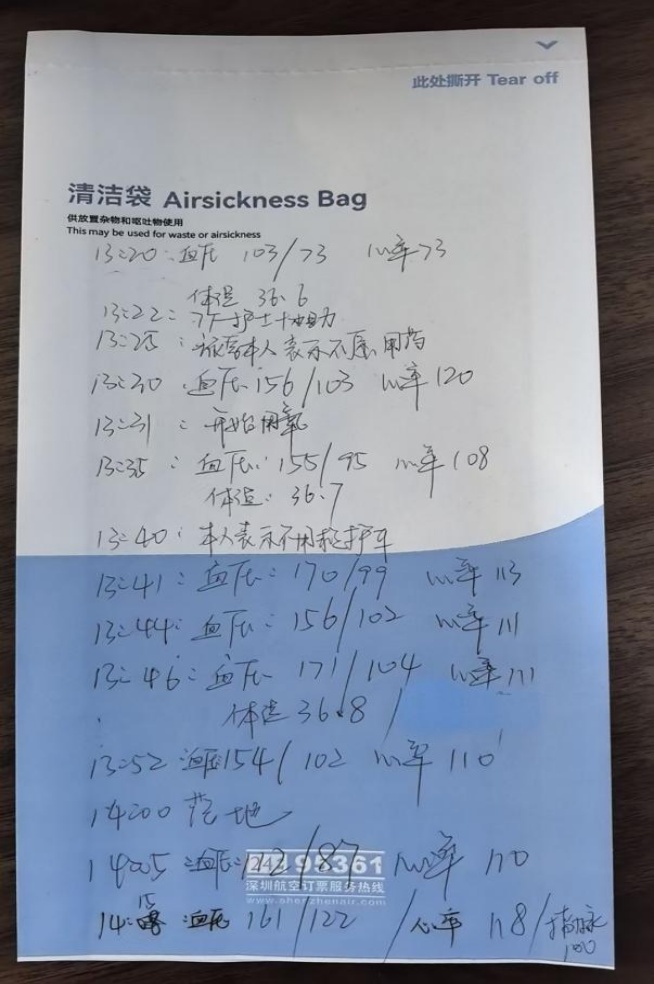 此处撕开 Tear off
清洁袋 Airsickness Bag
供放置杂物和呕吐物使用
This may be used for waste or airsickness
13:20:血压 103/73 心率73
体温 36.6
13:22: 护士协助
13:25:旅客本人表示不愿用药
13:30 血压:156/103 心率120
13:31:开始用氧
13:35:血压:155/95 心率108
体温:36.7
13:40:本人表示不用救护车
13:41:血压:170/99 心率113
13:44:血压:156/102 心率111
13:46:血压 171/104 心率111
体温 36.8/
13:52 血压154/102 心率110
14:00 落地
14:05 血压: /87 心率110
24H 95361
深圳航空订票服务热线
www.shenzhenair.com
14:15 血压 161/122 /心率 118/ 100